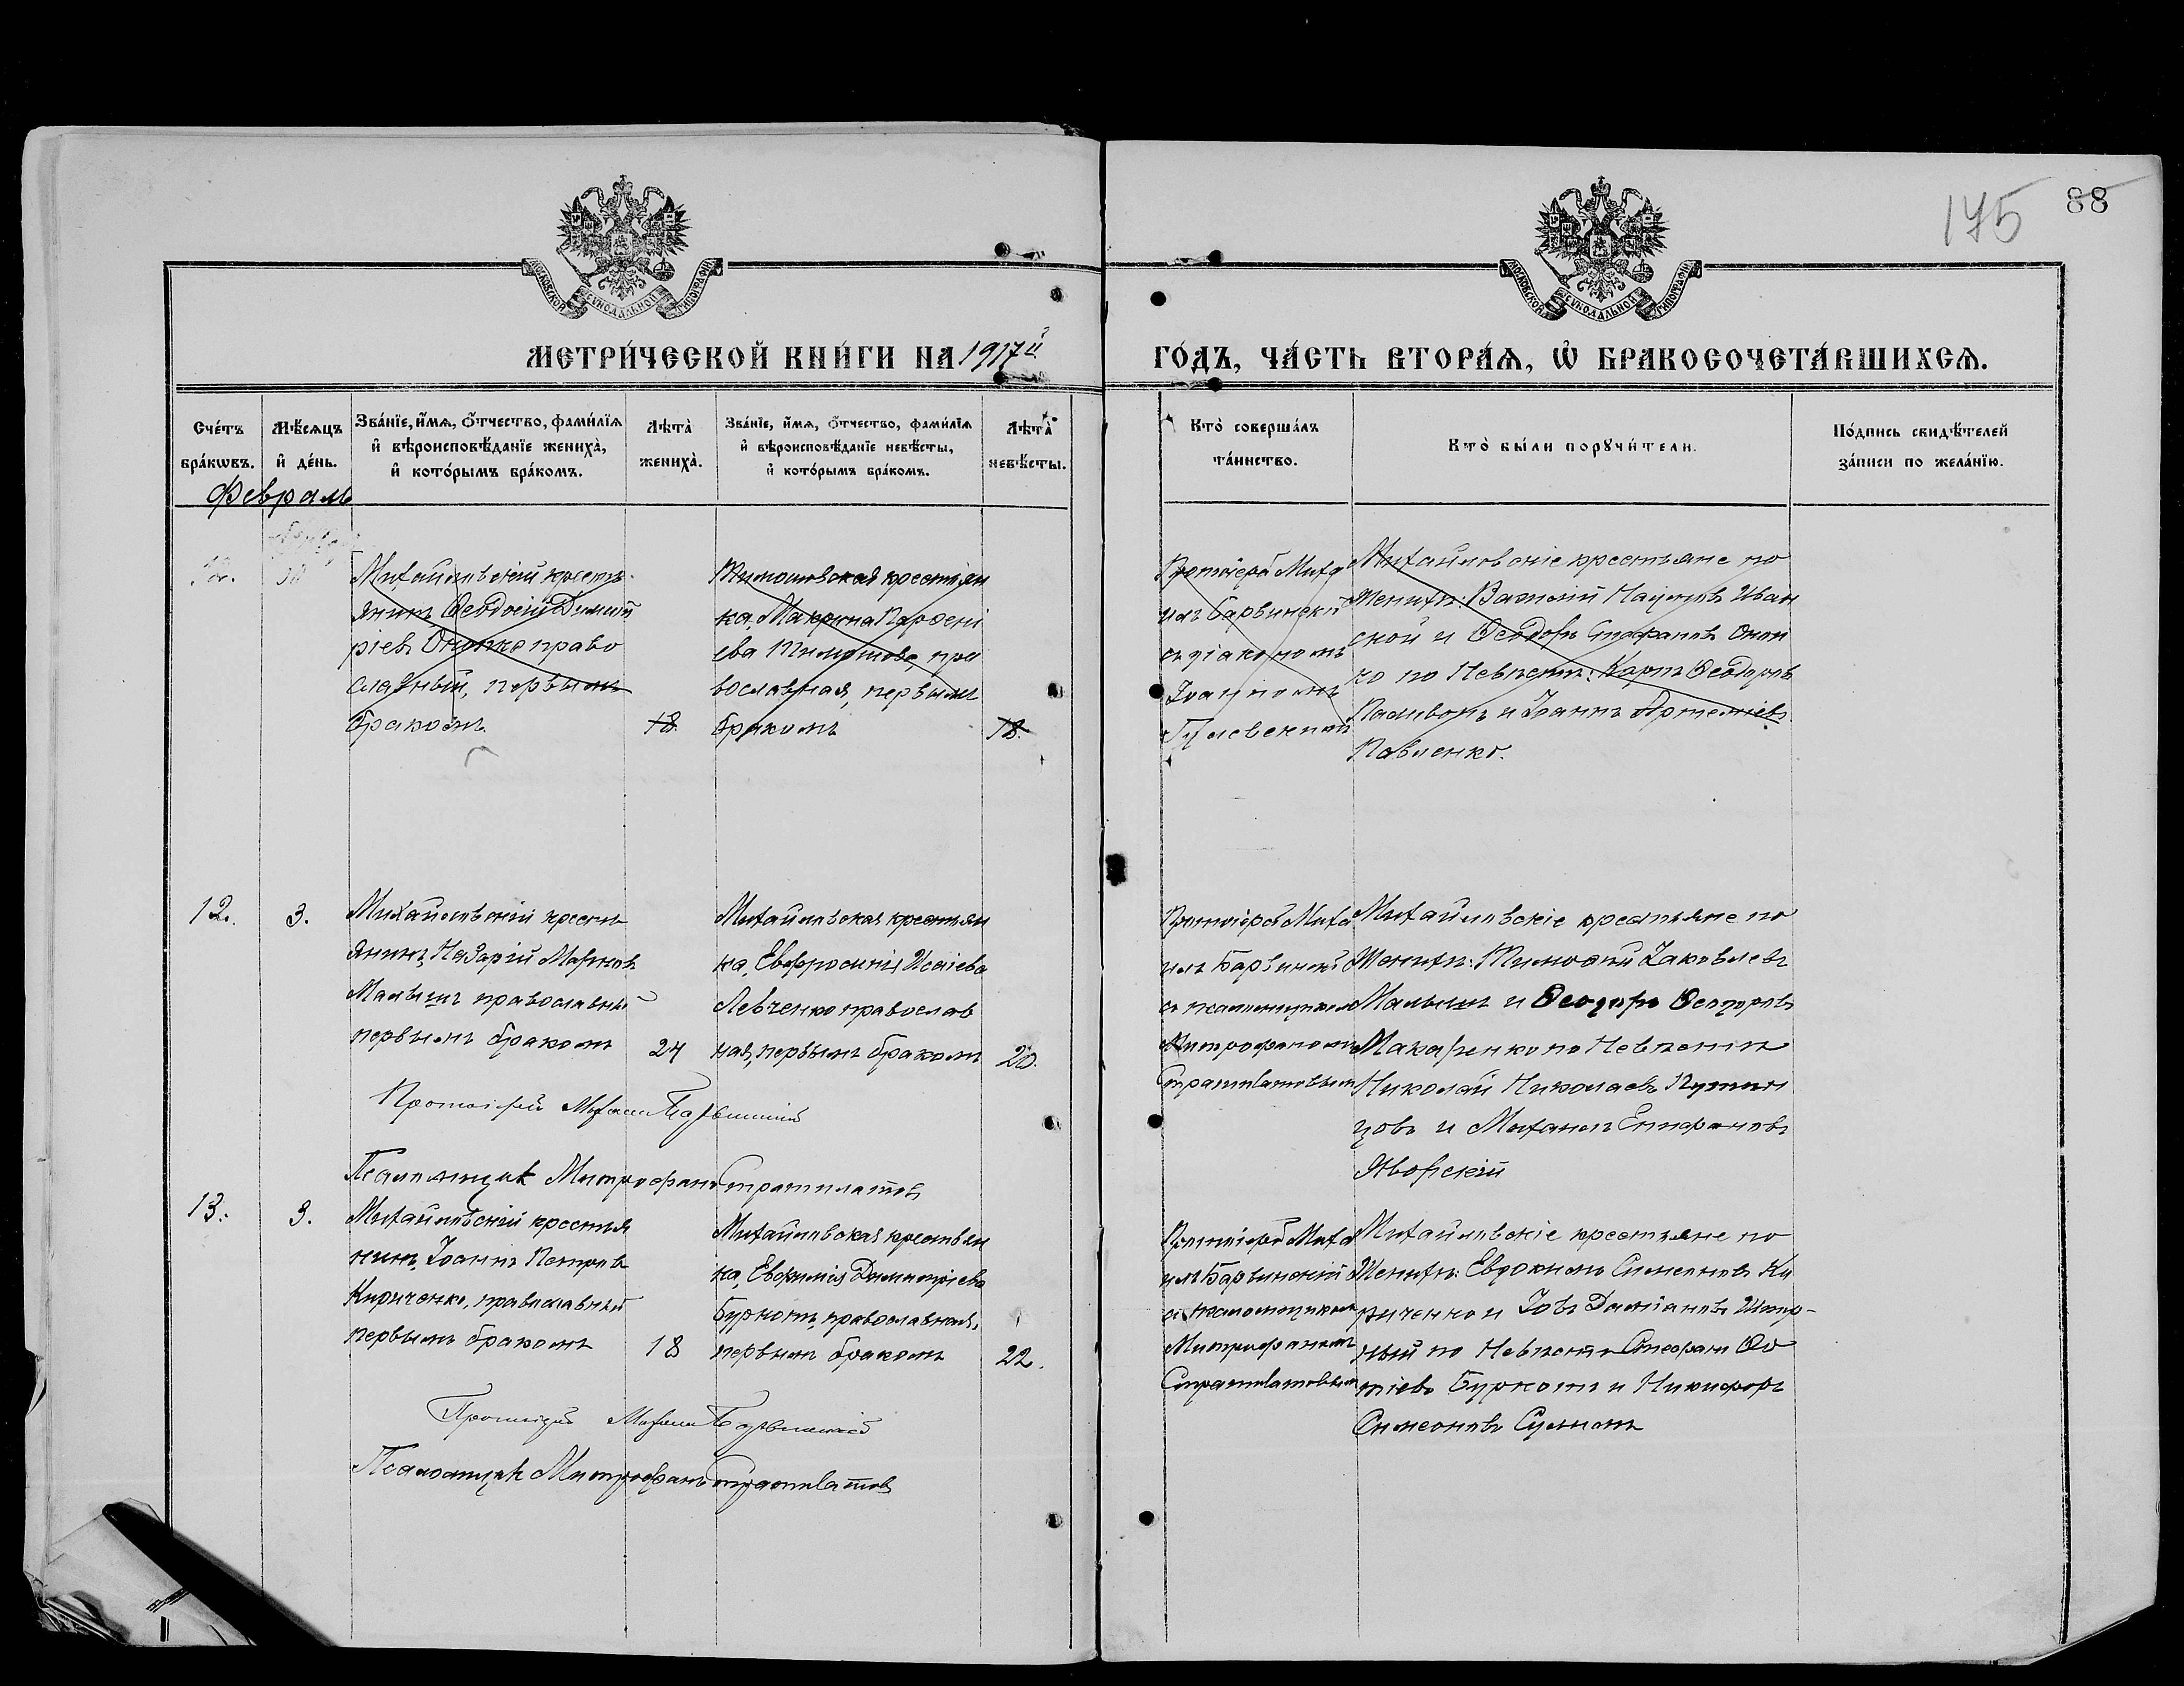 175 88
МОСКОВСКОЙ СѴНОДАЛЬНОЙ ТИПОГРАФІИ
МОСКОВСКОЙ СѴНОДАЛЬНОЙ ТИПОГРАФІИ
МЕТРИ́ЧЕСКОЙ КНИ́ГИ НА 1917й ГО́ДЪ, ЧА́СТЬ ВТОРА́Ѧ, Ѡ҆ БРАКОСОЧЕТА́ВШИХСѦ.
Сче́тъ бра́кѡвъ.
Мѣ́сѧцъ и҆ де́нь.
Зва́нїе, и҆́мѧ, ѻ҆́тчество, фами́лїѧ и҆ вѣроисповѣ́данїе жениха̀, и҆ кото́рымъ бра́комъ.
Лѣ́та̀ жениха̀.
Зва́нїе, и҆́мѧ, ѻ҆́тчество, фами́лїѧ и҆ вѣроисповѣ́данїе невѣ́сты, и҆ кото́рымъ бра́комъ.
Лѣ́та̀ невѣ́сты.
Кто̀ соверша́лъ та́инство.
Кто̀ бы́ли порꙋчи́тели.
По́дпись свидѣ́телей за́писи по жела́нїю.
Февраль
12.
Михайловскій кресть
янинъ Ѳеодосій Димит
ріевъ Онопко право
славный, первымъ
бракомъ.
18.
Тимошовская крестьян
ка, Макрина Парѳені
ева Тимошова, пра
вославная, первымъ
бракомъ
18.
Протоіерей Миха
илъ Барвинскій
съ діакономъ
Іоанномъ
Гулевскимъ
Михайловскіе крестьяне по
Женихѣ: Василій Наумовъ Иван
ской и Ѳеодоръ Стефановъ Оноп
ко по Невѣстѣ: Карпъ Ѳеодоровъ
Паливода и Іоаннъ Артеміевъ
Павленко.
12.
3.
Михайловскій кресть
янинъ, Назарій Марковъ
Малышъ православный
первымъ бракомъ
24
Михайловская крестьян
ка, Евфросинія Исаіева
Левченко православ
ная, первымъ бракомъ
20.
Протоіерей Миха
илъ Барвинскій
съ псаломщикомъ
Митрофаномъ
Стратилатовымъ
Михайловскіе крестьяне по
Женихѣ: Тимофей Іаковлевъ
Малышъ и Ѳеодоръ Ѳеодоровъ
Макаренко по Невѣстѣ
Николай Николаевъ
и Михаилъ Епифановъ
Яворскій
Протоіерей Михаил Барвинскій
Псаломщикъ Митрофанъ Стратилатовъ
13.
3.
Михайловскій крестья
нинъ, Іоаннъ Петровъ
Кириченко, православный
первымъ бракомъ
18
Михайловская крестьян
ка, Евфимія Димитріева
Буркотъ, православная,
первымъ бракомъ
22.
Протоіерей Миха
илъ Барвинскій
съ псаломщикомъ
Митрофаномъ
Стратилатовымъ
Михайловскіе крестьяне по
Женихѣ: Евдокимъ Симеоновъ Ки
риченко и Іовъ Даміановъ
по Невѣстѣ Стефанъ Фо
тіевъ Буркотъ и Никифоръ
Симеоновъ
Протоіерей Михаил Барвинскій
Псаломщикъ Митрофанъ Стратилатовъ